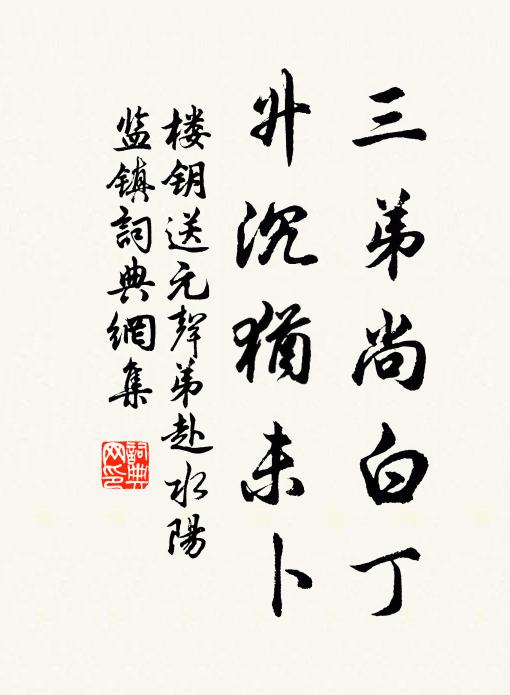 三弟尚白丁
升沉猶未卜
楼钥送元聲弟赴水陽
监镇詞典網集
詞典網印